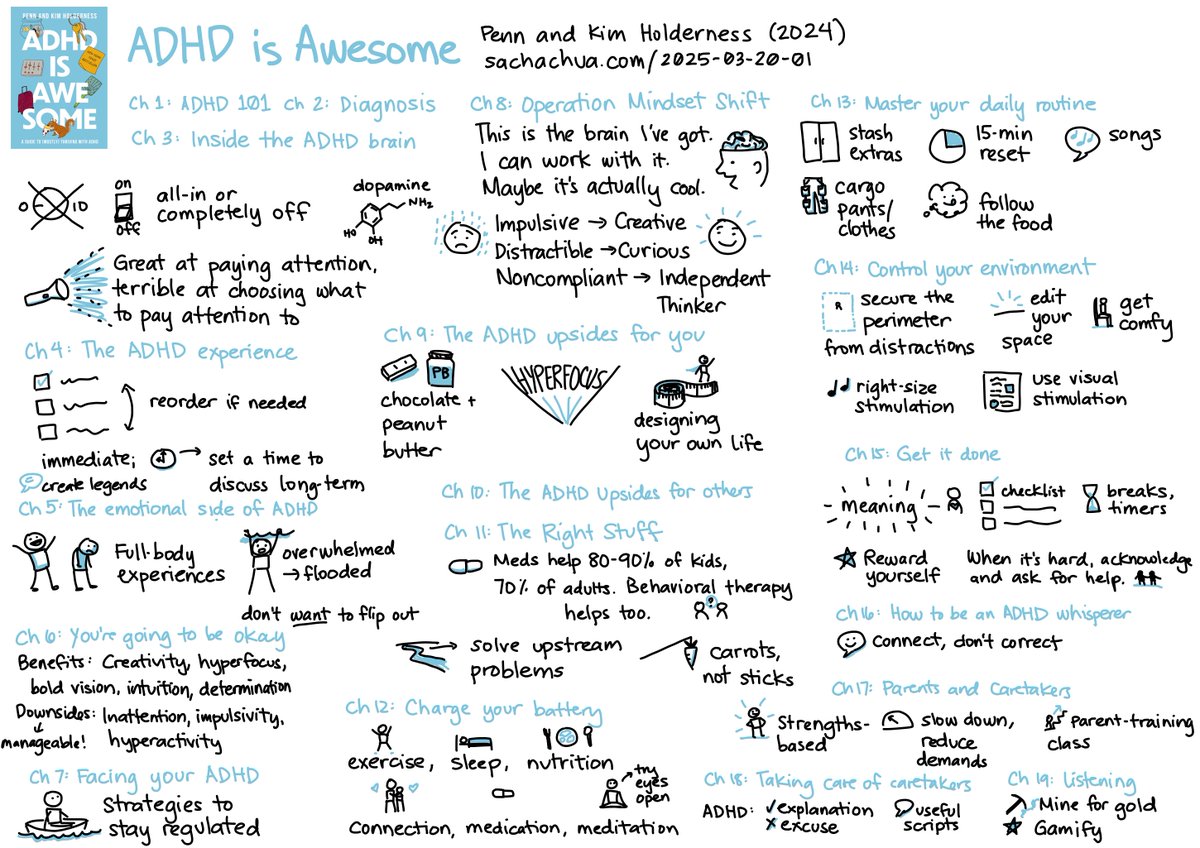 PENN AND KIM HOLDERNESS
ADHD
IS
AWE
SOME
A GUIDE TO (MOSTLY) THRIVING WITH ADHD
ADHD is Awesome
Penn and Kim Holderness (2024)
sachachua.com/2025-03-20-01
Ch 1: ADHD 101 Ch 2: Diagnosis
Ch 3: Inside the ADHD brain
0 10
on
off
all-in or
completely off
dopamine
NH₂
HO
OH
Great at paying attention,
terrible at choosing what
to pay attention to
Ch 4: The ADHD experience
reorder if needed
immediate;
create legends
set a time to
discuss long-term
Ch 5: The emotional side of ADHD
Full-body
experiences
overwhelmed
→ flooded
don't want to flip out
Ch 6: You're going to be okay
Benefits: Creativity, hyperfocus,
bold vision, intuition, determination
Downsides: Inattention, impulsivity,
hyperactivity
manageable!
Ch 7: Facing your ADHD
Strategies to
stay regulated
Ch 8: Operation Mindset Shift
This is the brain I've got.
I can work with it.
Maybe it's actually cool.
Impulsive → Creative
Distractible → Curious
Noncompliant → Independent
Thinker
Ch 9: The ADHD upsides for you
PB
chocolate +
peanut
butter
HYPERFOCUS
designing
your own life
Ch 10: The ADHD upsides for others
Ch 11: The Right Stuff
Meds help 80-90% of kids,
70% of adults. Behavioral therapy
helps too.
→ solve upstream
problems
carrots,
not sticks
Ch 12: Charge your battery
exercise, sleep, nutrition
try
eyes
open
Connection, medication, meditation
Ch 13: Master your daily routine
stash
extras
15-min
reset
songs
cargo
pants/
clothes
follow
the food
Ch 14: Control your environment
secure the
perimeter
from distractions
edit
your
space
get
comfy
right-size
stimulation
use visual
stimulation
Ch 15: Get it done
meaning
checklist
breaks,
timers
Reward
yourself
When it's hard, acknowledge
and ask for help.
Ch 16: How to be an ADHD whisperer
Connect, don't correct
Ch 17: Parents and Caretakers
Strengths-
based
slow down,
reduce
demands
parent-training
class
Ch 18: Taking care of caretakers
ADHD: ✓ explanation
✗ excuse
useful
scripts
Ch 19: Listening
Mine for gold
Gamify